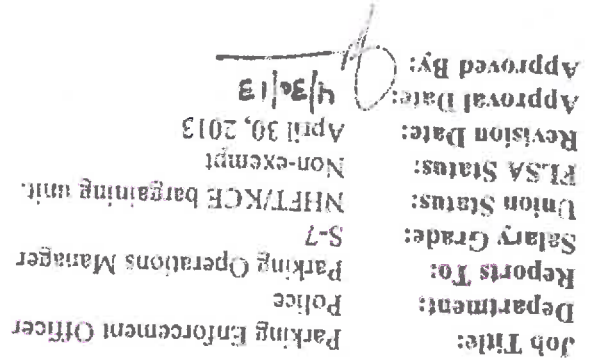 Job Title: Parking Enforcement Officer
Department: Police
Reports To: Parking Operations Manager
Salary Grade: S-7
Union Status: NHFT/KCE bargaining unit.
FLSA Status: Non-exempt
Revision Date: April 30, 2013
Approval Date: 4/30/13
Approved By: